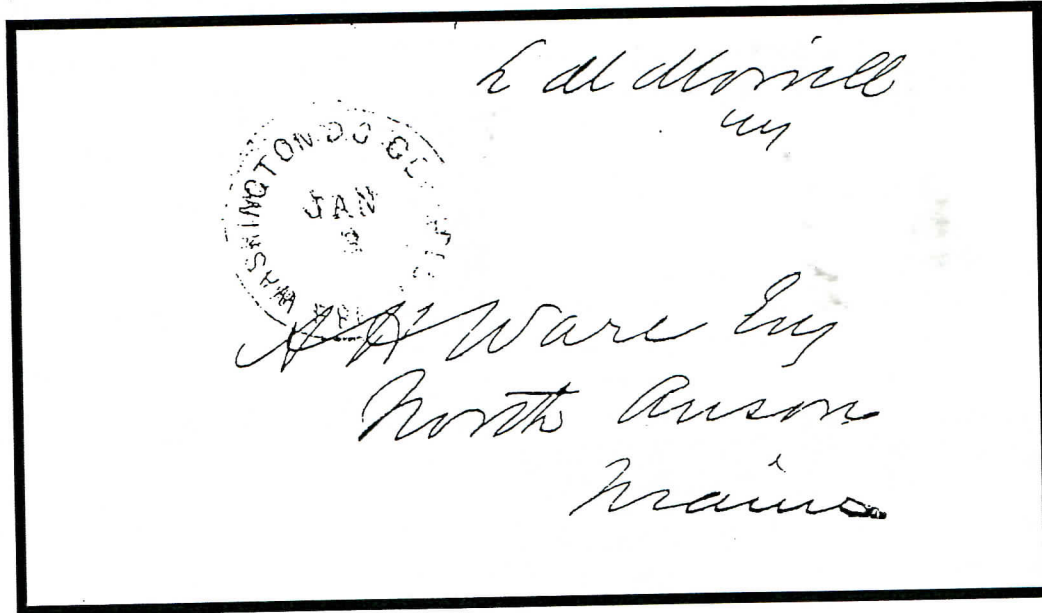 L M Morrill
WASHINGTON D.C.
JAN
2
Ware Esq
North Anson
Maine